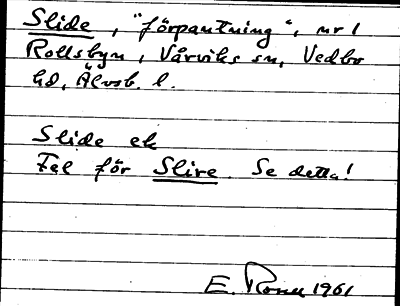 Slide, "förpantning", nr 1
Rollsbyn, Vårviks sn, Vedbo
hd, Älvsb. l.
Slide ek
Fel för Slire. Se detta!
E. 1961